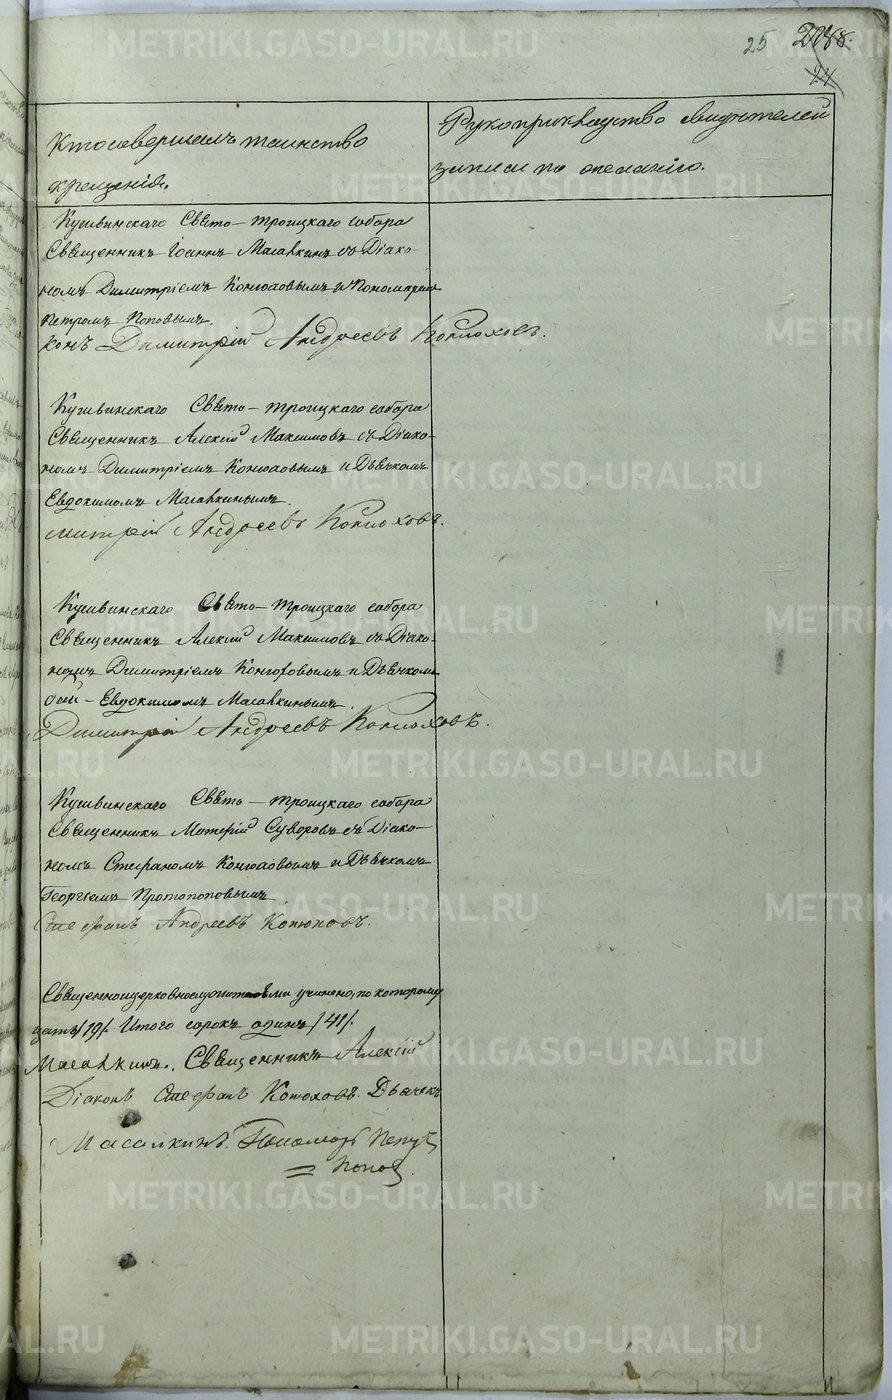 25
24
Кто совершалъ таинство
крещенія.
Рукоприкладство свидѣтелей
записи по желанію.
Кушвинскаго Свято-Троицкаго собора
Священникъ Іоаннъ Масалкинъ съ Діако-
номъ Димитріемъ Конюховымъ и Пономаремъ
Петромъ Поповымъ.
конъ Димитрій Андреевъ Конюховъ.
Кушвинскаго Свято-Троицкаго собора
Священникъ Алексій Максимовъ съ Діако-
номъ Димитріемъ Конюховымъ и Дьячкомъ
Евдокимомъ Масалкинымъ.
митрій Андреевъ Конюховъ.
Кушвинскаго Свято-Троицкаго собора
Священникъ Алексій Максимовъ съ Діако-
номъ Димитріемъ Конюховымъ и Дьячком
Евдокимомъ Масалкинымъ.
Димитрій Андреевъ Конюховъ.
Кушвинскаго Свято-Троицкаго собора
Священникъ Матфій Суворовъ съ Діако-
номъ Стефаномъ Конюховымъ и Дьячкомъ
Георгіемъ Протопоповымъ.
Стефанъ Андреевъ Конюховъ.
Священноцерковнослужителями учинено, по которому
цать /19/. Итого сорокъ одинъ /41/.
Масалкинъ. Священникъ Алексій
Діаконъ Стефанъ Конюховъ. Дьячекъ
Масалкинъ. Пономарь Петръ
Попов.
METRIKI.GASO-URAL.RU